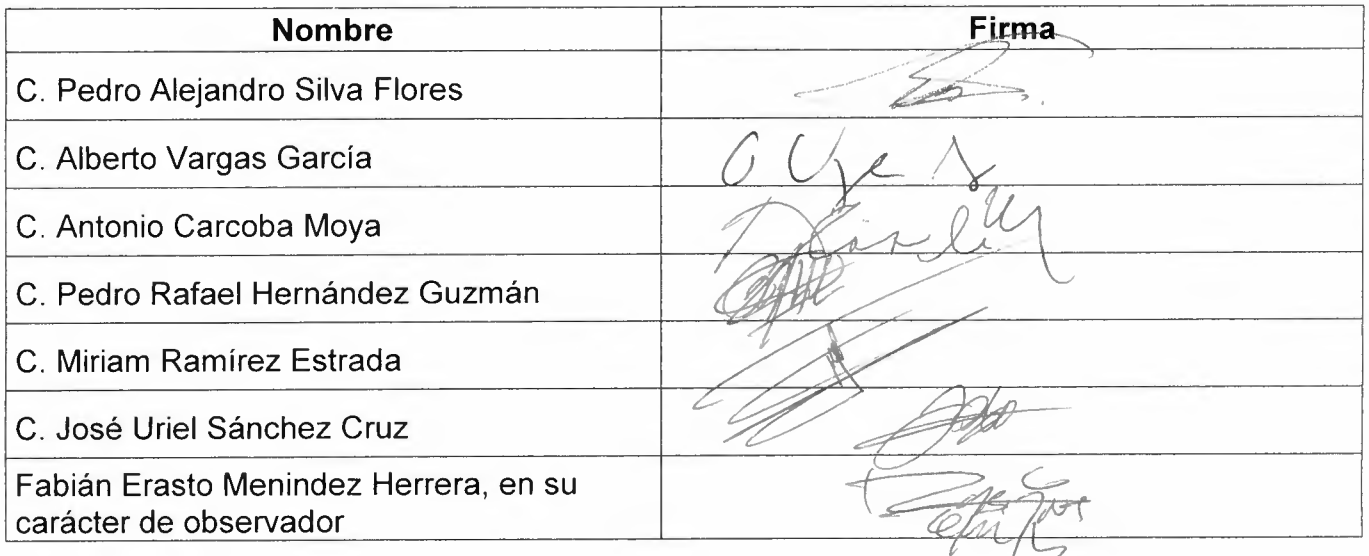 Nombre Firma
C. Pedro Alejandro Silva Flores
C. Alberto Vargas García
C. Antonio Carcoba Moya
C. Pedro Rafael Hernández Guzmán
C. Miriam Ramírez Estrada
C. José Uriel Sánchez Cruz
Fabián Erasto Menindez Herrera, en su
carácter de observador